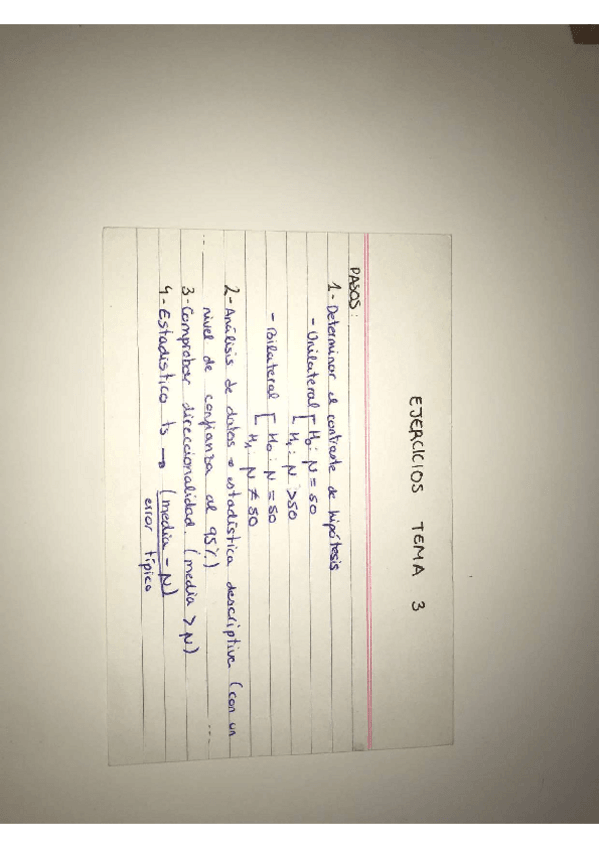 EJERCICIOS TEMA 3
PASOS:
1- Determinar el contraste de hipótesis
- Unilateral [ H₀: μ = 50
H₁: μ > 50
- Bilateral [ H₀: μ = 50
H₁: μ ≠ 50
2- Análisis de datos → estadística descriptiva (con un
nivel de confianza al 95%)
3- Comprobar direccionalidad. (media > μ)
4- Estadístico ts → (media - μ)
error típico